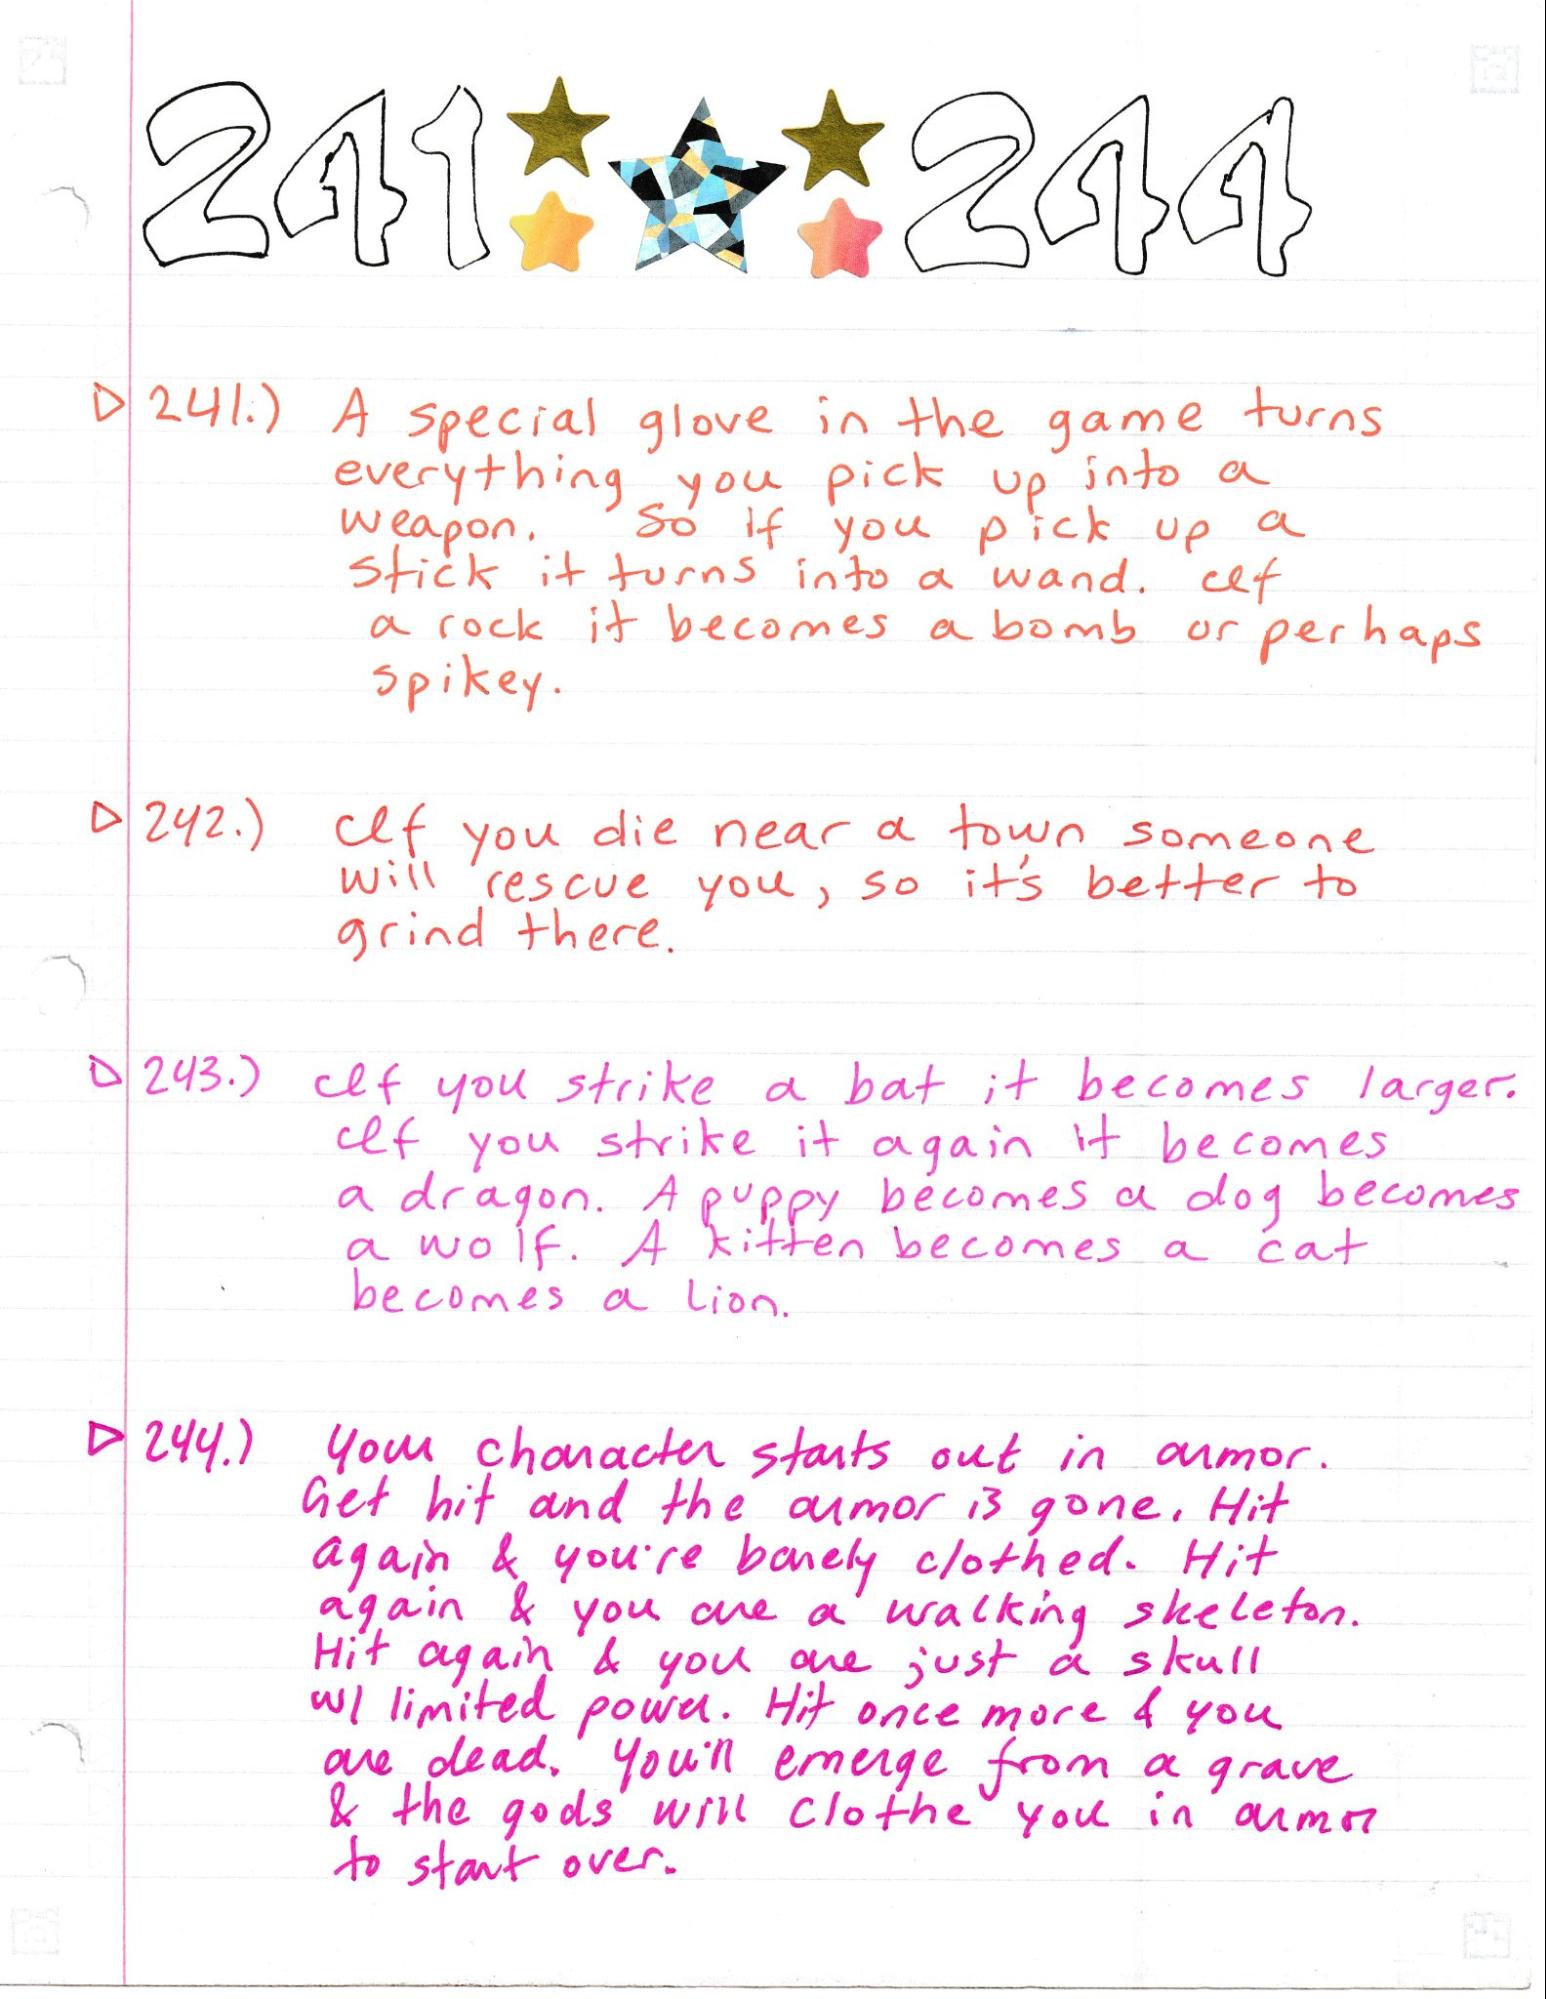 241 244
241.) A special glove in the game turns
everything you pick up into a
weapon. So if you pick up a
stick it turns into a wand. If
a rock it becomes a bomb or perhaps
spikey.
242.) If you die near a town someone
will rescue you, so it's better to
grind there.
243.) If you strike a bat it becomes larger.
If you strike it again it becomes
a dragon. A puppy becomes a dog becomes
a wolf. A kitten becomes a cat
becomes a lion.
244.) Your character starts out in armor.
Get hit and the armor is gone. Hit
again & you're barely clothed. Hit
again & you are a walking skeleton.
Hit again & you are just a skull
w/ limited power. Hit once more & you
are dead. You'll emerge from a grave
& the gods will clothe you in armor
to start over.